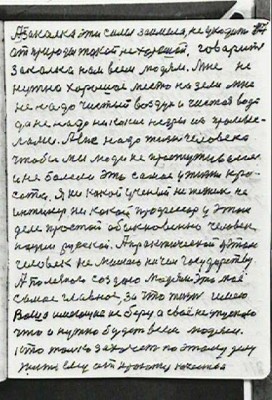 А закалка эти силы заимела, не уходить
от природы такой нехорошей, говорится
закалка нам всем людям. Мне не
нужно хорошое место на земли мне
не надо чистый воздух и чистой воды
да не надо никаких недр из промыс-
лами. А мне надо живой человека
чтобы мы люди не простуживались
и не болели это самое у жизни кра-
сота. Я ни какой ученый не техник не
инженер ни какой профессор у этом
деле простой обыкновенно человек
нации русской. А практический у этом
человек не мешаю ничем государству.
А полезного создаю людям это моё
самое главное, за что тут имею
Ваше имеющие не беру а своё не
что и нужно будет всем людям.
кто только захочет по этому делу
жить ему от природы